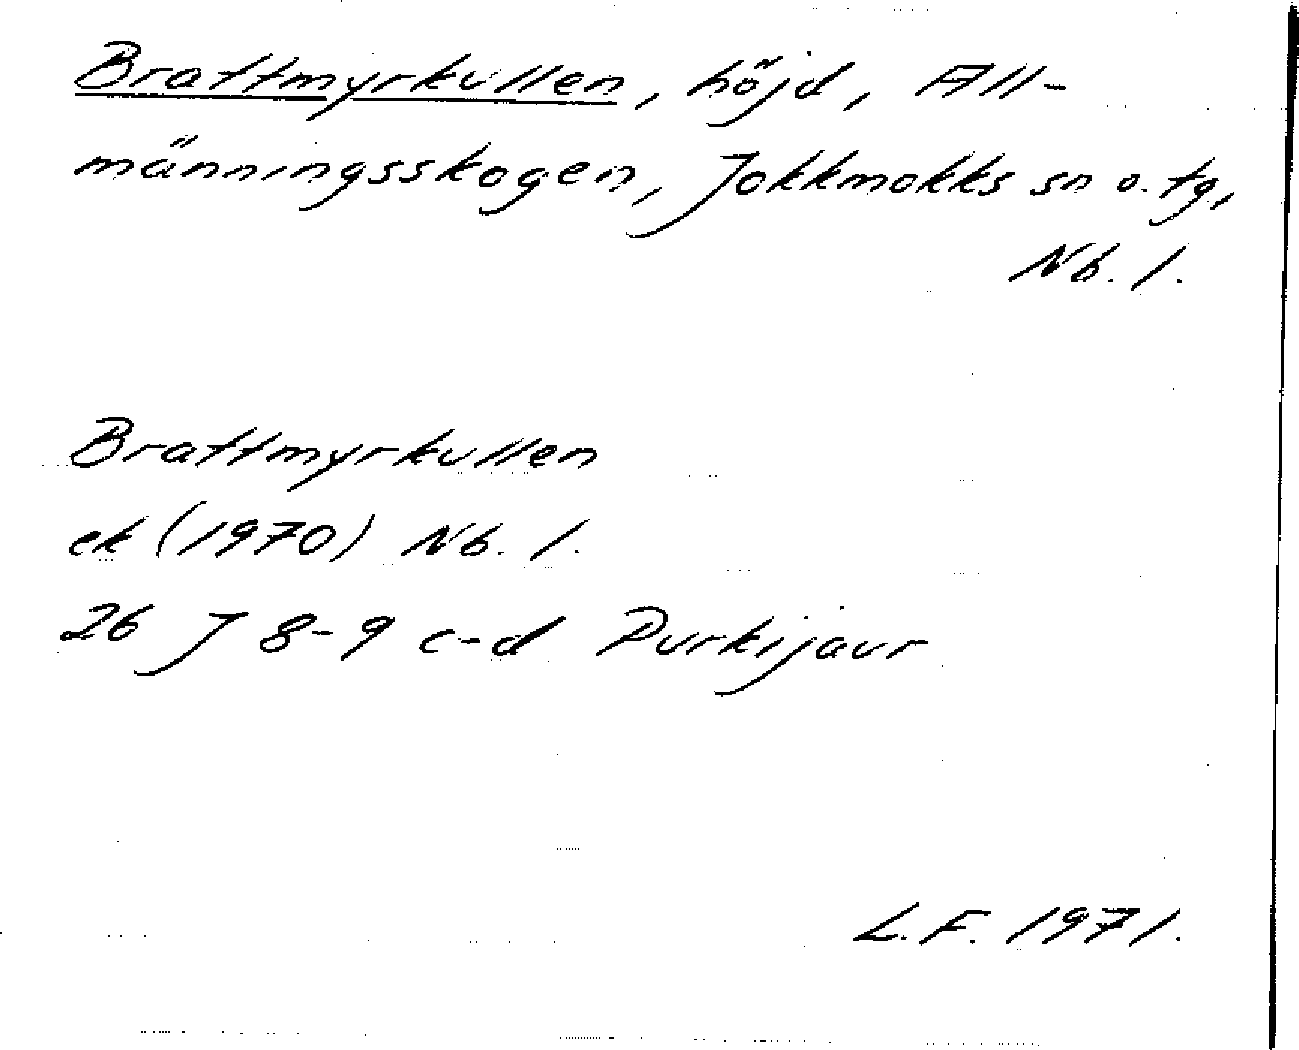 Brattmyrkullen, höjd, All-
männingsskogen, Jokkmokks sn o. tg,
Nb. l.
Brattmyrkullen
ek (1970) Nb. l.
26 J 8-9 c-d Purkijaur
L.F. 1971.